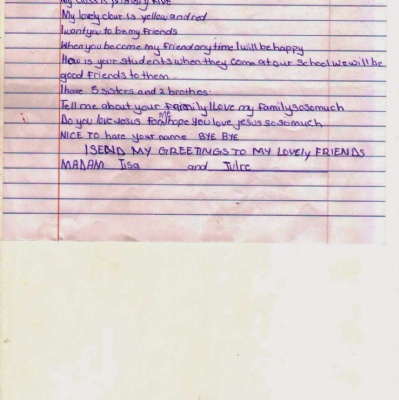 My class is primary five
My lovely clour is yellow and red
I want you to be my Friends
When you become my Friend any time I will be happy
How is your students when they come at our school we will be
good Friends to them
I have 5 sisters and 2 brothers.
Tell me about your Family I Love my Family so so much
Do you love Jesus For me I hope you love jesus so so much
NICE TO hare your name BYE BYE
I SEND MY GREETINGS TO MY LOVELY FRIENDS
MADAM Lisa and Julre